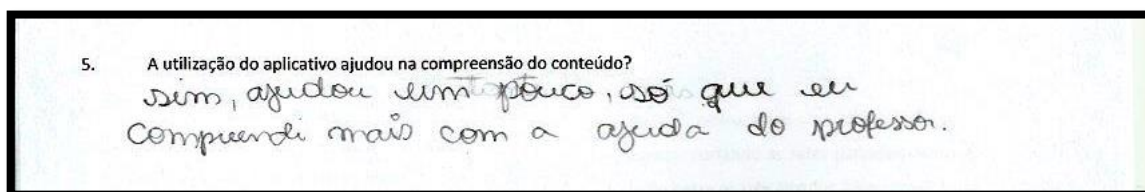 5. A utilização do aplicativo ajudou na compreensão do conteúdo?
sim, ajudou um pouco, só que eu
compreendi mais com a ajuda do professor.